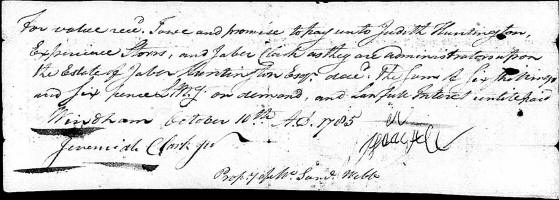 For value recd. I owe and promise to pay unto Judith Huntington,
Experience Storrs, and Jabez Clark as they are administrators upon
the Estate of Jabez Huntington Esqr. decd. the sum of six shillings
and six pence L.My. on demand, and Lawfull Interest until paid
Windham October 10th A.D. 1785
Jeremiah Clark Jur
Webb